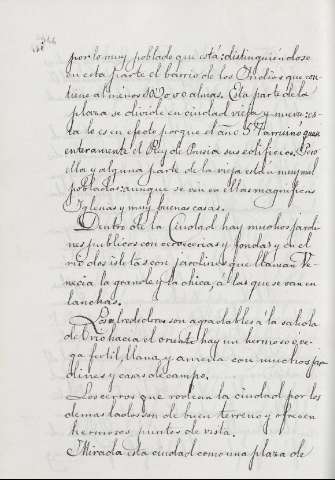 por lo muy poblado que está: distinguiendose
en esta parte el barrio de los Indios que con
tiene al ménos 10,000 almas. Esta parte de la
plaza se divide en ciudad vieja y nueva: es
ta lo es en efecto porque el año 57 arruinó quasi
enteramente el Rey de Prusia sus edificios. Pero
ella y alguna parte de la vieja estan muy mal
pobladas: aunque se ven en ellas magnificas
Iglesias y muy buenas casas.
Dentro de la Ciudad hay muchos jardi
nes publicos con
y fondas y en el
rio dos isletas con jardines que llaman Ve
necia la grande y la chica, a las que se va en
lanchas.
Los alrededores son agradables á la salida
del rio hacia el oriente hay un hermoso ve
ga fertil, llana, y amena con muchos jar
dines y casas de campo.
Los cerros que rodean la ciudad por los
demas lados son de buen terreno y ofrecen
hermosos puntos de vista.
Mirada esta ciudad como una plaza de